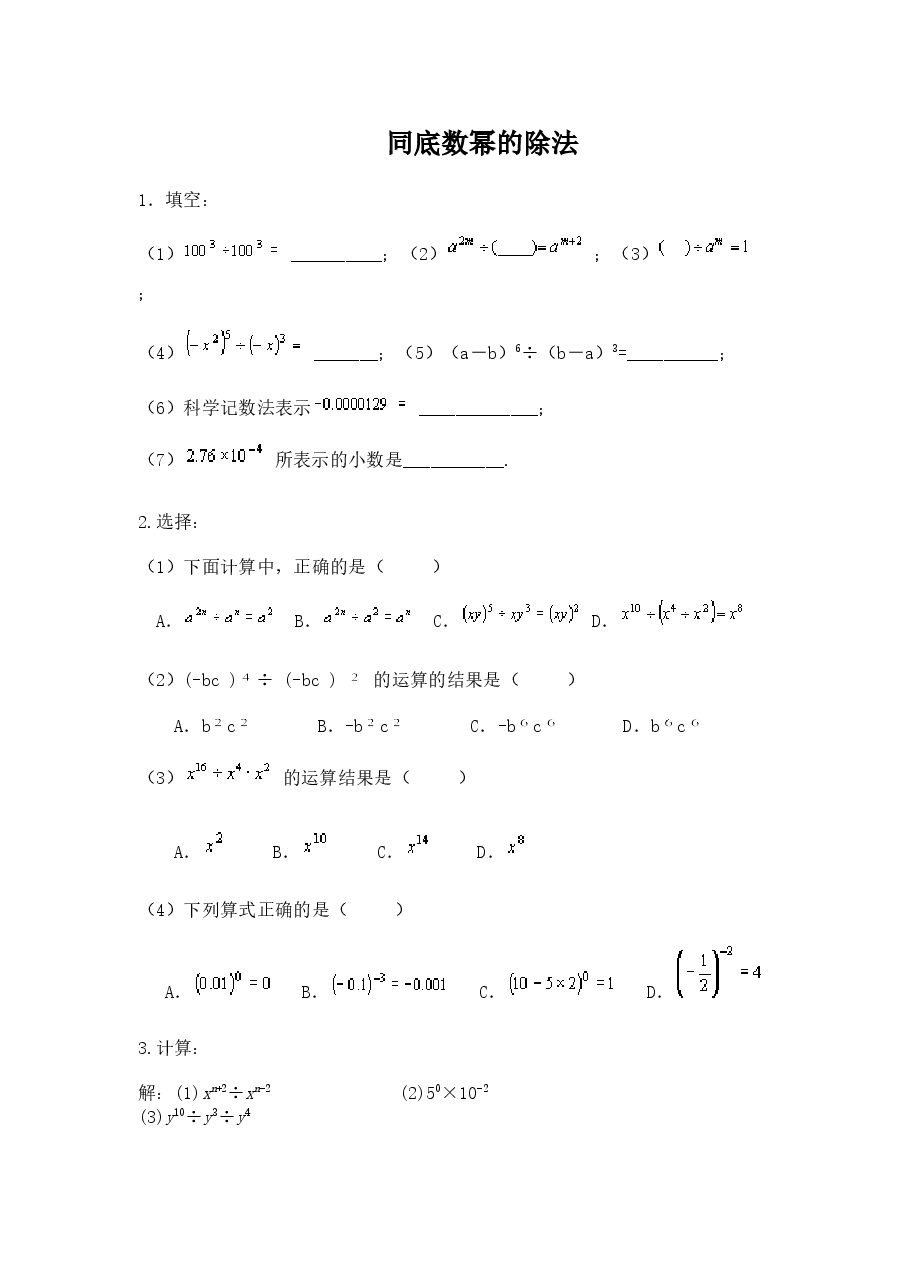 同底数幂的除法
1．填空：
（1）100³÷100³= __________；（2）a^{2m}÷(____)=a^{m+2} ；（3）(  )÷a^m=1
；
（4）(-x²)⁵÷(-x)³= _______；（5）（a－b）⁶÷（b－a）³=__________；
（6）科学记数法表示-0.0000129 = _____________；
（7）2.76×10⁻⁴ 所表示的小数是___________．
2.选择：
（1）下面计算中，正确的是（ ）
A．a^{2n}÷a^n=a² B．a^{2n}÷a²=a^n C．(xy)⁵÷xy³=(xy)² D．x¹⁰÷(x⁴÷x²)=x⁸
（2）(-bc )⁴÷ (-bc ) ² 的运算的结果是（ ）
A．b²c² B．-b²c² C．-b⁶c⁶ D．b⁶c⁶
（3）x¹⁶÷x⁴·x² 的运算结果是（ ）
A．x² B．x¹⁰ C．x¹⁴ D．x⁸
（4）下列算式正确的是（ ）
A．(0.01)⁰=0 B．(-0.1)⁻³=-0.001 C．(10-5×2)⁰=1 D．(-1/2)⁻²=4
3.计算：
解：(1)x^{n+2}÷x^{n-2} (2)5⁰×10⁻²
(3)y¹⁰÷y³÷y⁴